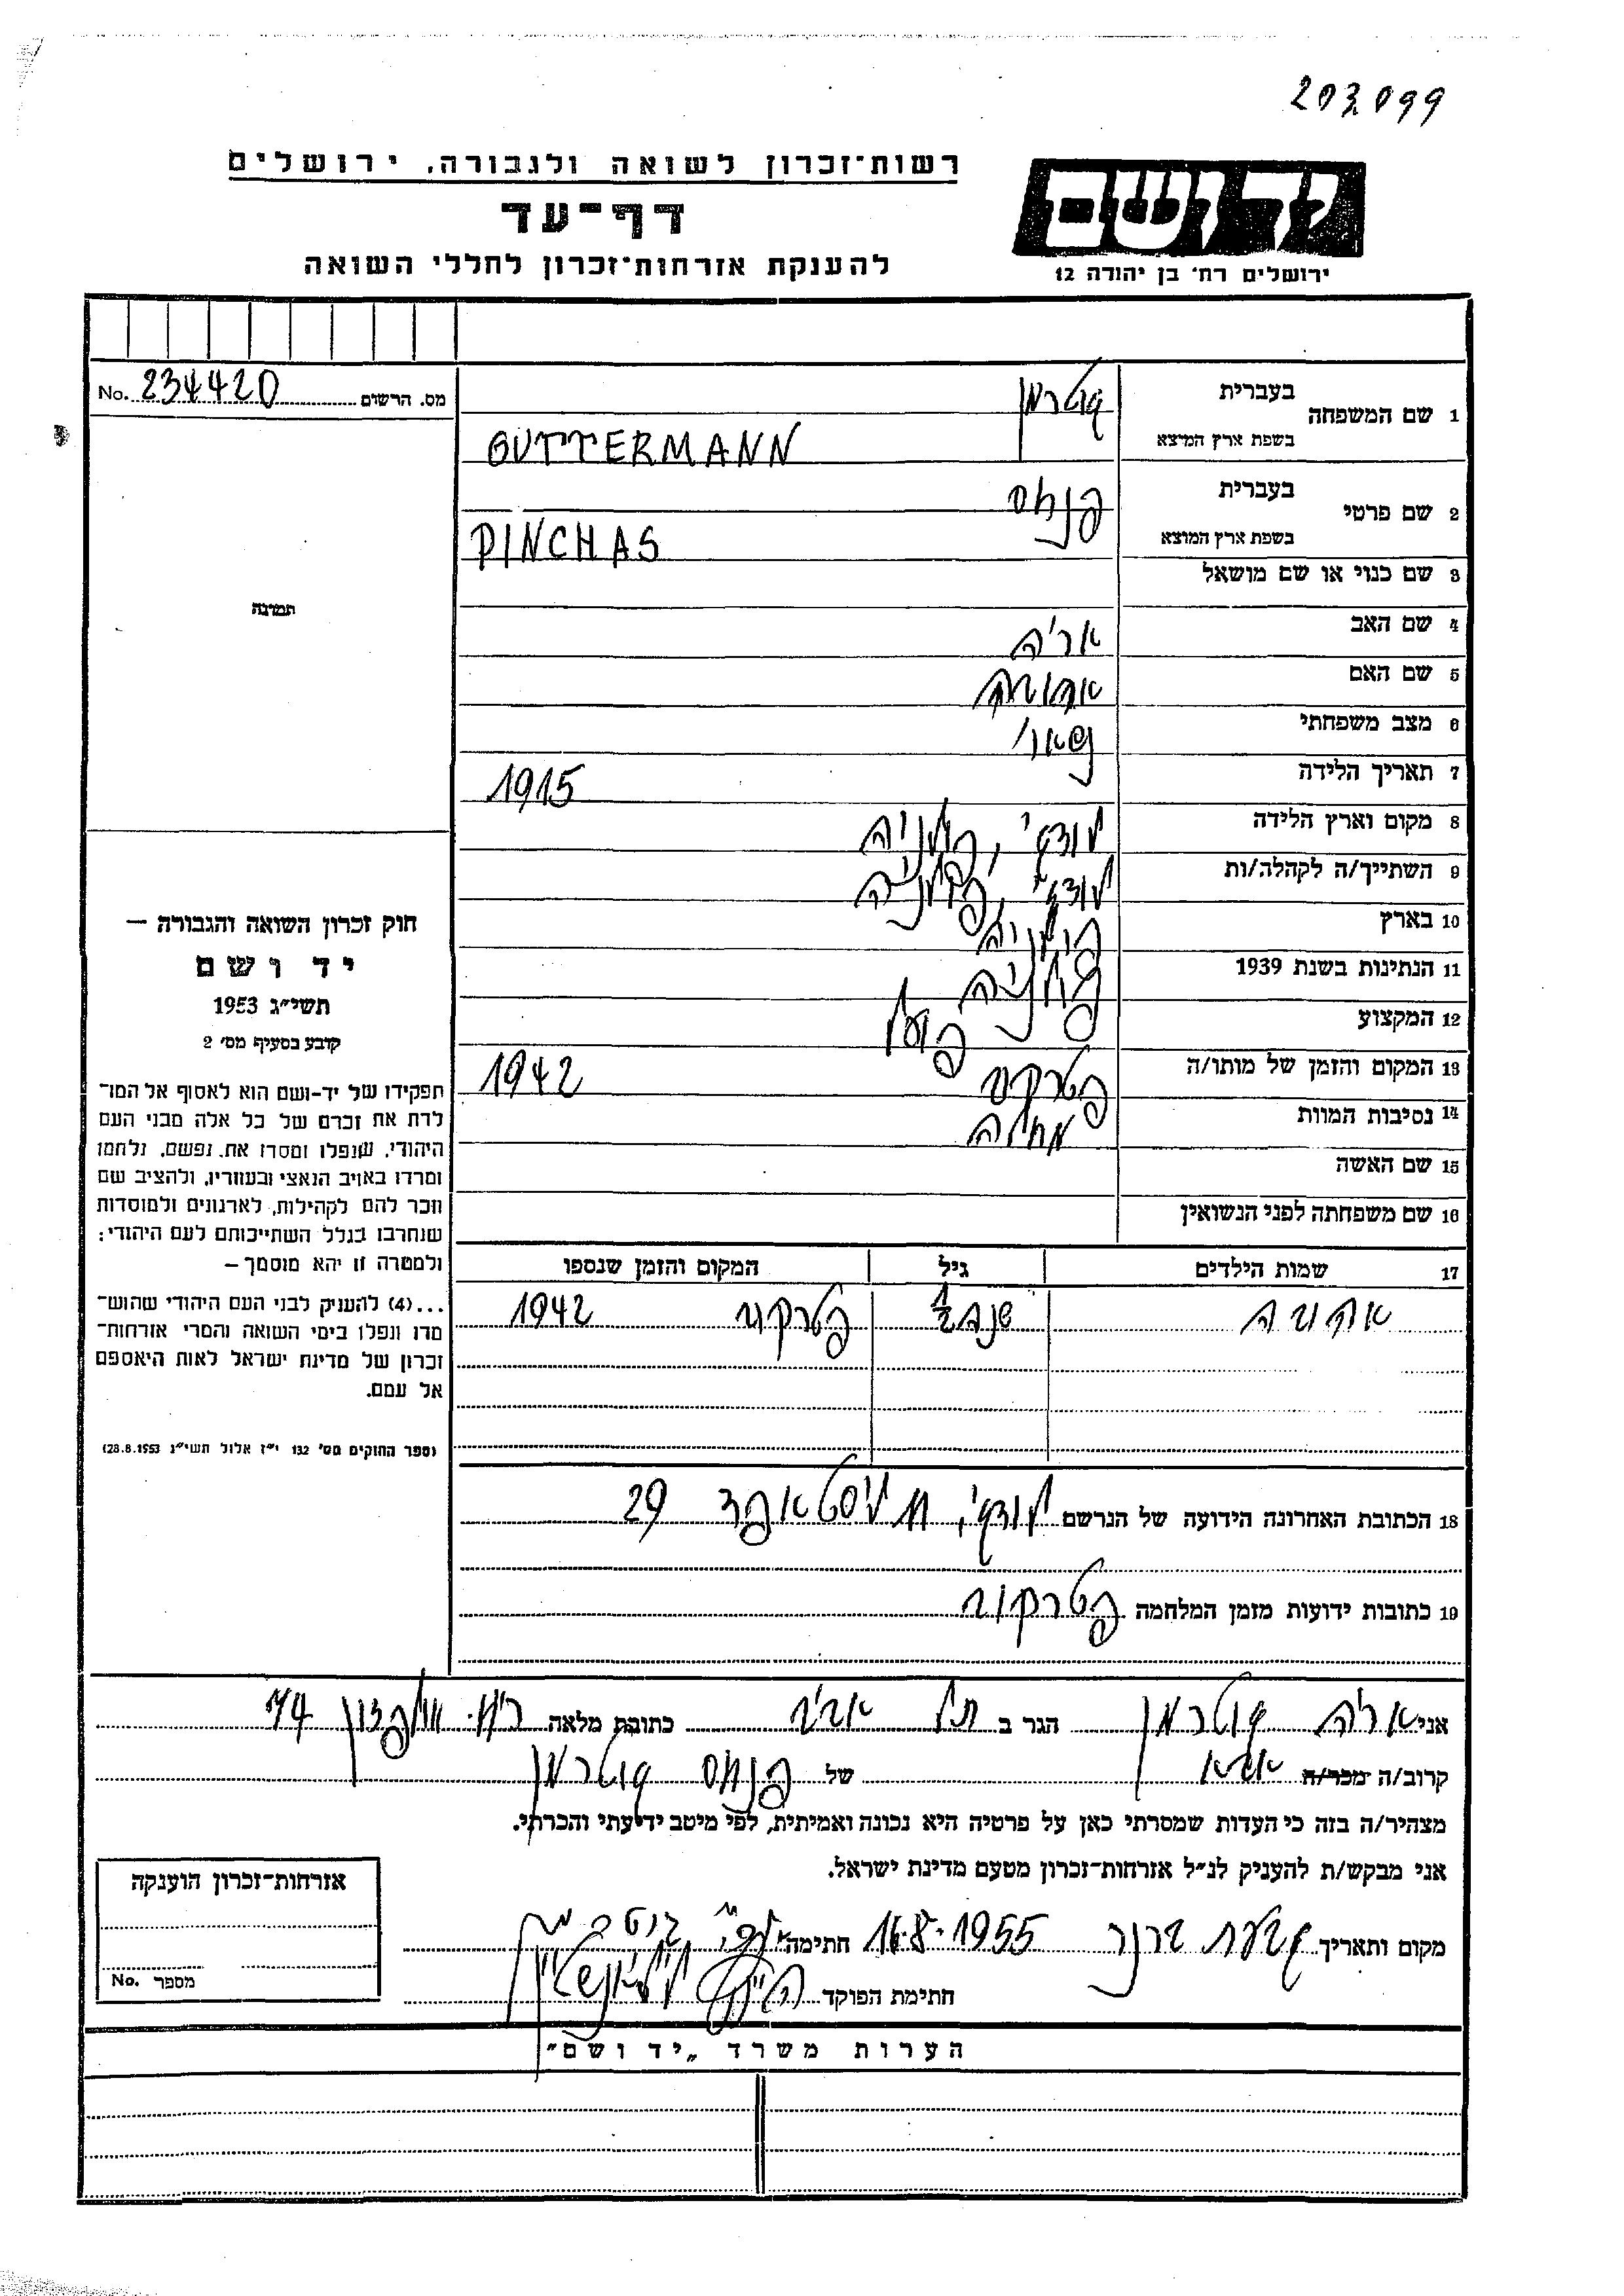 203.099
רשות־זכרון לשואה ולגבורה, ירושלים
יד ושם
דף־עד
להענקת אזרחות־זכרון לחללי השואה
ירושלים רח׳ בן יהודה 12
מס. הרשום 234420 No.
1 שם המשפחה
בעברית גוטרמן
בשפת ארץ המוצא GUTTERMANN
2 שם פרטי
בעברית פנחס
בשפת ארץ המוצא PINCHAS
3 שם כנוי או שם מושאל
4 שם האב אריה
5 שם האם
6 מצב משפחתי נשוי
7 תאריך הלידה 1915
8 מקום וארץ הלידה לודז׳, פולניה
9 השתייך/ה לקהלה/ות לודז׳, פולניה
10 בארץ פולניה
11 הנתינות בשנת 1939 פולניה
12 המקצוע פועל
13 המקום והזמן של מותו/ה פטרקוב 1942
14 נסיבות המוות מחלה
15 שם האשה
16 שם משפחתה לפני הנשואין
17 שמות הילדים גיל המקום והזמן שנספו
שנה ½ פטרקוב 1942
18 הכתובת האחרונה הידועה של הנרשם לודז׳, 29
19 כתובות ידועות מזמן המלחמה פטרקוב
תמונה
חוק זכרון השואה והגבורה —
יד ושם
תשי״ג 1953
קובע בסעיף מס׳ 2
תפקידו של יד-ושם הוא לאסוף אל המו־
לדת את זכרם של כל אלה מבני העם
היהודי, שנפלו ומסרו את נפשם, נלחמו
ומרדו באויב הנאצי ובעוזריו, ולהציב שם
וזכר להם לקהילות, לארגונים ולמוסדות
שנחרבו בגלל השתייכותם לעם היהודי;
ולמטרה זו יהא מוסמך —
...(4) להעניק לבני העם היהודי שהוש־
מדו ונפלו בימי השואה והמרי אזרחות־
זכרון של מדינת ישראל לאות היאספם
אל עמם.
(ספר החוקים מס׳ 132 י״ז אלול תשי״ג 28.8.1953)
אני אריה גוטרמן הגר ב תל אביב כתובת מלאה
קרוב/ה מכר/ה אבא של פנחס גוטרמן
מצהיר/ה בזה כי העדות שמסרתי כאן על פרטיה היא נכונה ואמיתית, לפי מיטב ידיעתי והכרתי.
אני מבקש/ת להעניק לנ״ל אזרחות-זכרון מטעם מדינת ישראל.
מקום ותאריך גבעת ברנר 16.8.1955 חתימה
חתימת הפוקד
אזרחות-זכרון הוענקה
מספר No.
הערות משרד „יד ושם״